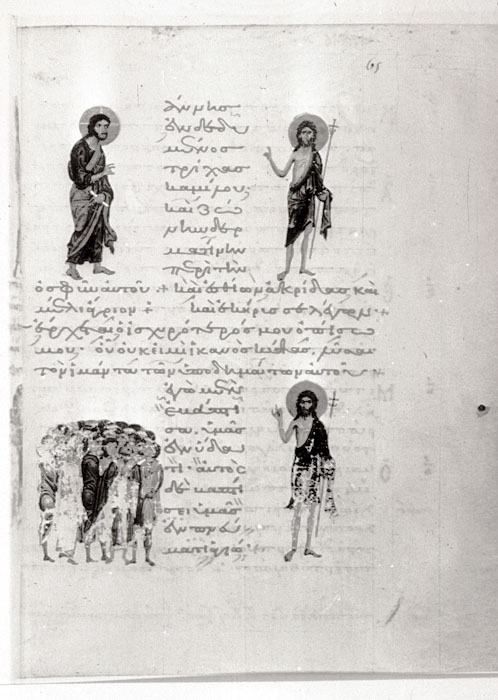 άννης
ἐνδεδυ
μένος
τρίχας
καμήλου·
καὶ ζώ
νην δερ
ματίνην
περὶ τὴν
ὀσφῦν αὐτοῦ + καὶ ἐσθίων ἀκρίδας καὶ
μέλι ἄγριον + καὶ ἐκήρυσσε λέγων +
ἔρχεται ὁ ἰσχυρότερός μου ὀπίσω
μου· οὗ οὐκ εἰμὶ ἱκανὸς κύψας λῦσαι
τὸν ἱμάντα τῶν ὑποδημάτων αὐτοῦ +
ἐγὼ μὲν
ἐβάπτι
σα ὑμᾶς
ἐν ὕδα
τι· αὐτὸς
δὲ βαπτί
σει ὑμᾶς
ἐν πνεύ
ματι ἁγίω